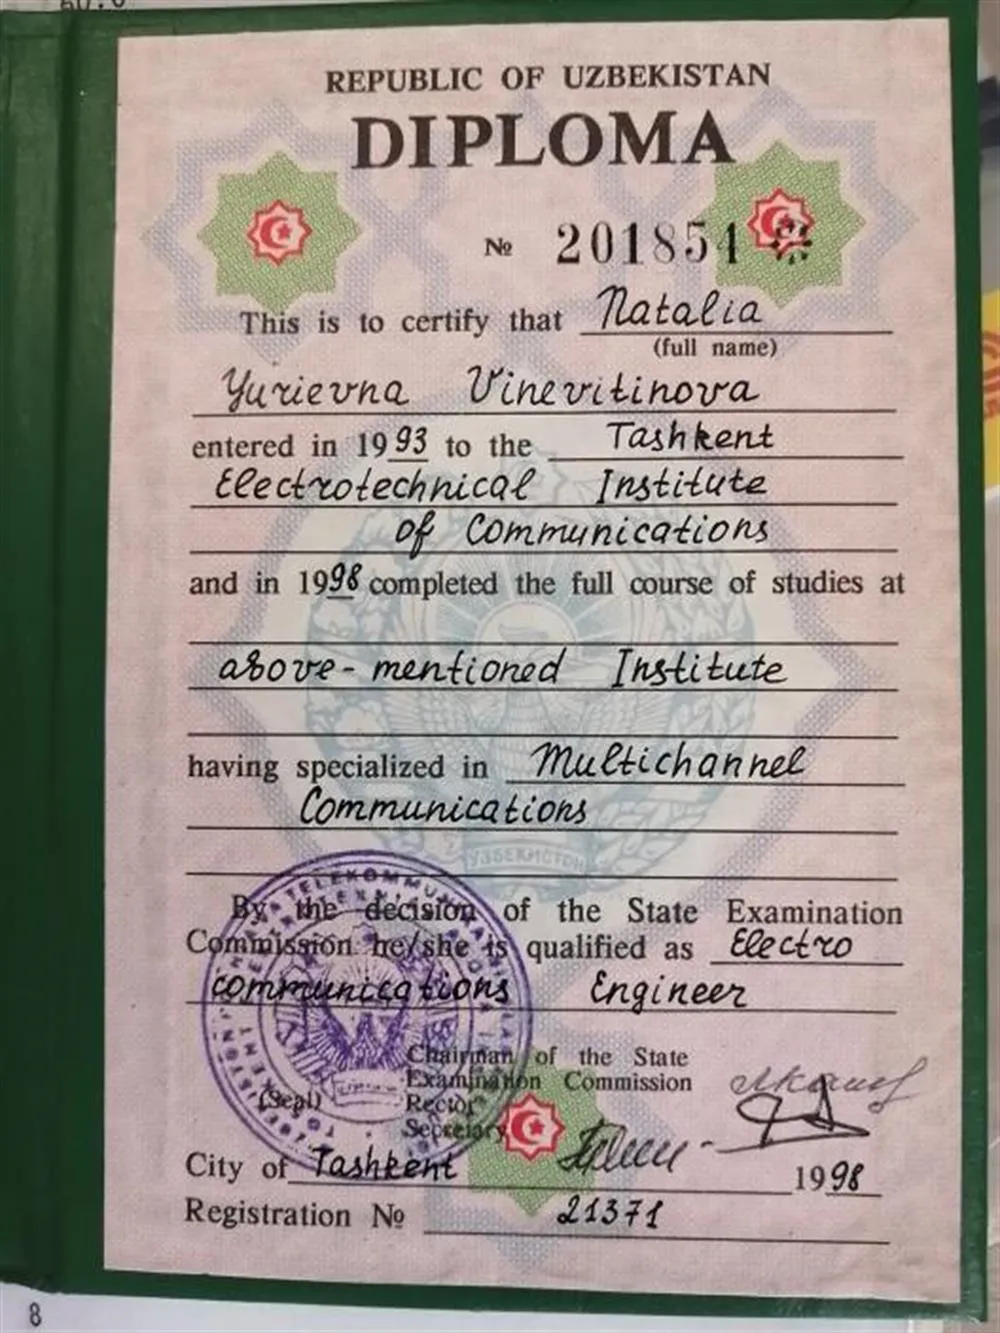 REPUBLIC OF UZBEKISTAN
DIPLOMA
№ 201854
This is to certify that Natalia
(full name)
Yurievna Vinevitinova
entered in 1993 to the Tashkent
Electrotechnical Institute
of Communications
and in 1998 completed the full course of studies at
above-mentioned Institute
having specialized in Multichannel
Communications
ЎЗБЕКИСТОН
By the decision of the State Examination
Commission he/she is qualified as Electro
communications Engineer
Chairman of the State
Examination Commission
(Seal) Rector
Secretary
City of Tashkent 1998
Registration № 21371
8